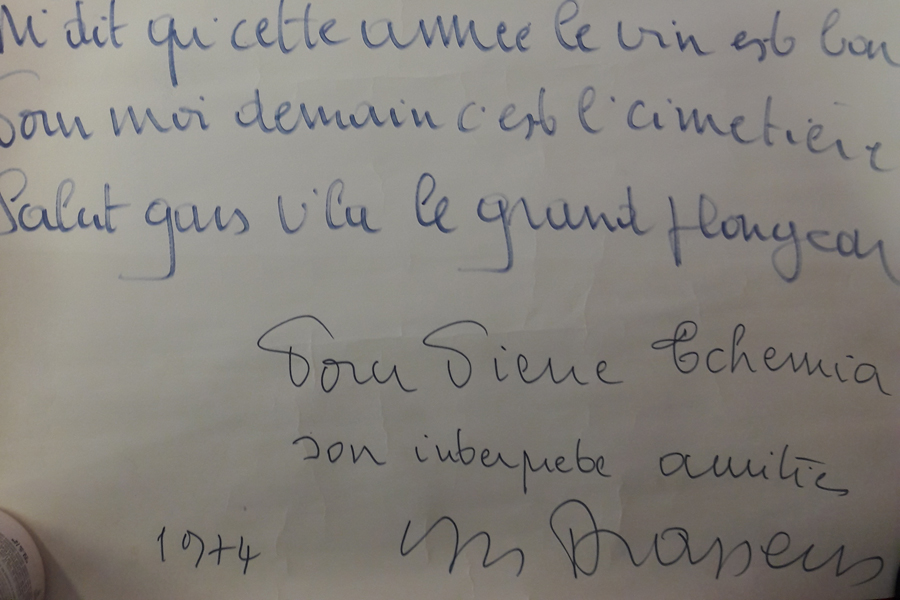 M'dit qu'cette année le vin est bon
Pour moi demain c'est l'cimetière
Salut gars v'la le grand plongeon
Pour Pierre Echemia
son interprete amitiés
1974